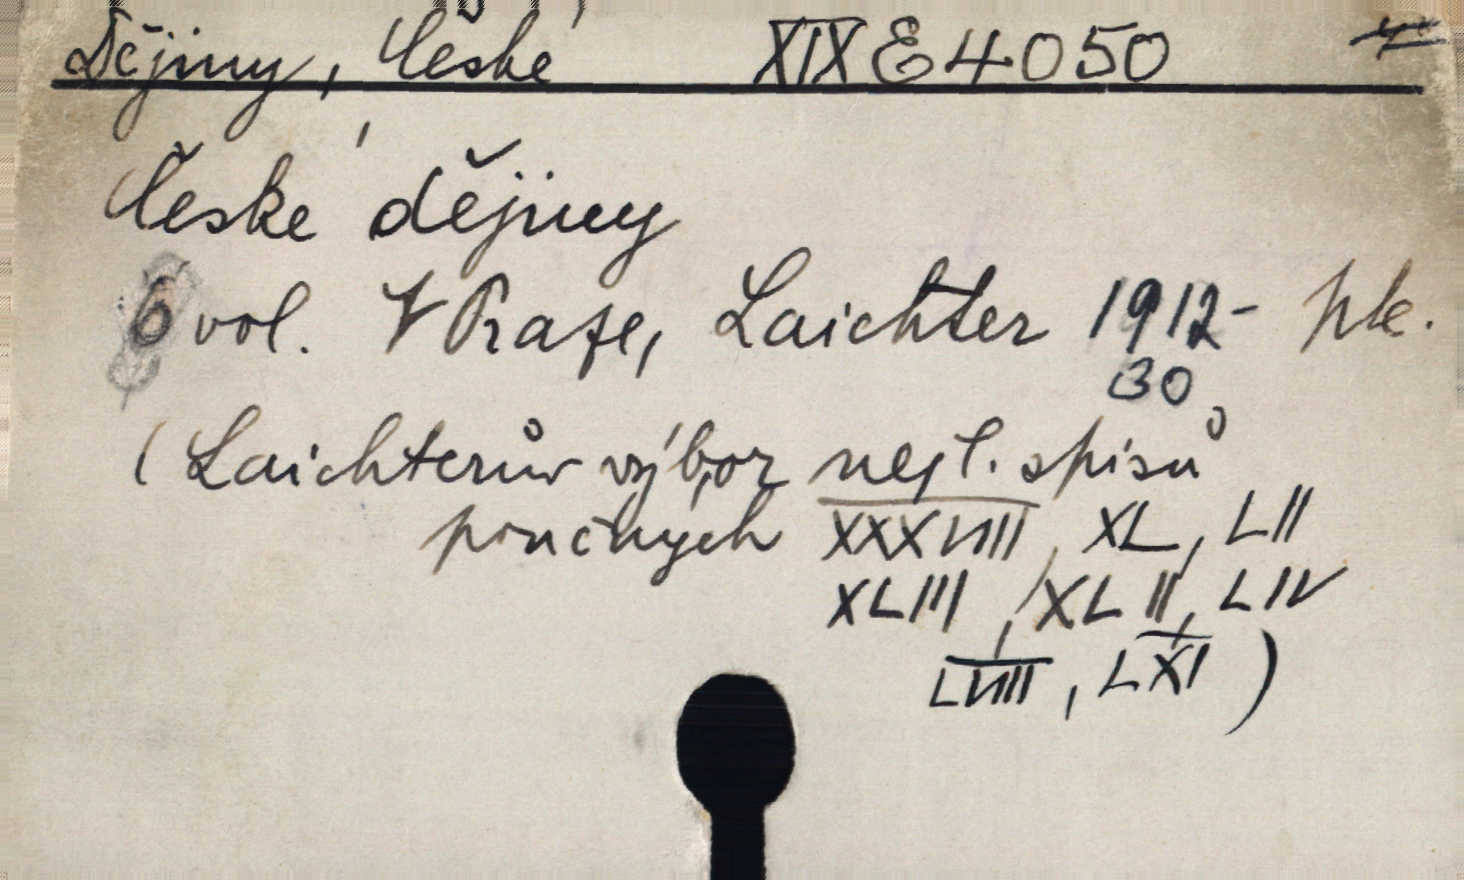 Dějiny, České XIX E 4050
České dějiny
6 vol. V Praze, Laichter 1912- ple.
30
(Laichterův výbor nejl. spisů
poučných XXXVIII, XL, LII
XLIII, XLII, LIV
LVIII, LXI)